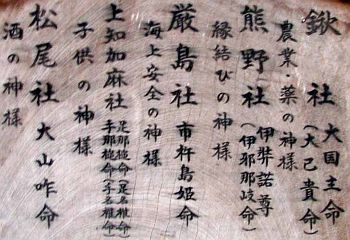 鍬社 大国主命(大己貴命)
農業・薬の神様
熊野社 伊弉諾尊(伊邪那岐命)
縁結びの神様
厳島社 市杵島姫命
海上安全の神様
上知加麻社 足那槌命(足名椎命)手那槌命(手名椎命)
子供の神様
松尾社 大山咋命
酒の神様